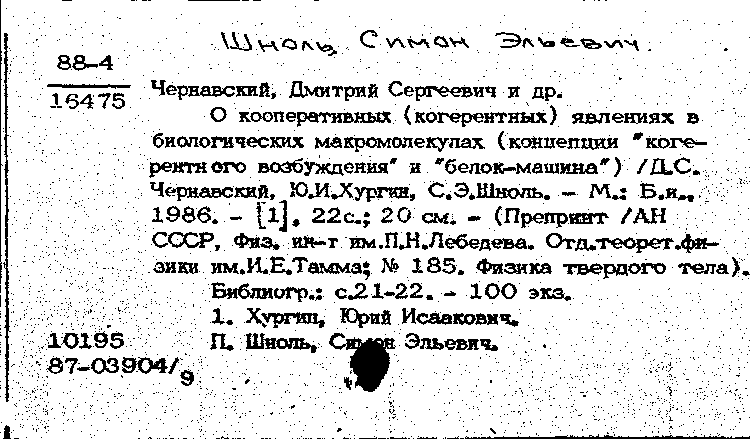 Шноль, Симон Эльевич.
88-4
16475
Чернавский, Дмитрий Сергеевич и др.
О кооперативных (когерентных) явлениях в
биологических макромолекулах (концепции "коге-
рентного возбуждения" и "белок-машина") /Д.С.
Чернавский, Ю.И.Хургин, С.Э.Шноль. - М.: Б.и.,
1986. - [1], 22с.; 20 см. - (Препринт /АН
СССР, Физ. ин-т им.П.Н.Лебедева. Отд.теорет.фи-
зики им.И.Е.Тамма; № 185. Физика твердого тела).
Библиогр.: с.21-22. - 100 экз.
1. Хургин, Юрий Исаакович.
П. Шноль, Симон Эльевич.
10195
87-03904/9